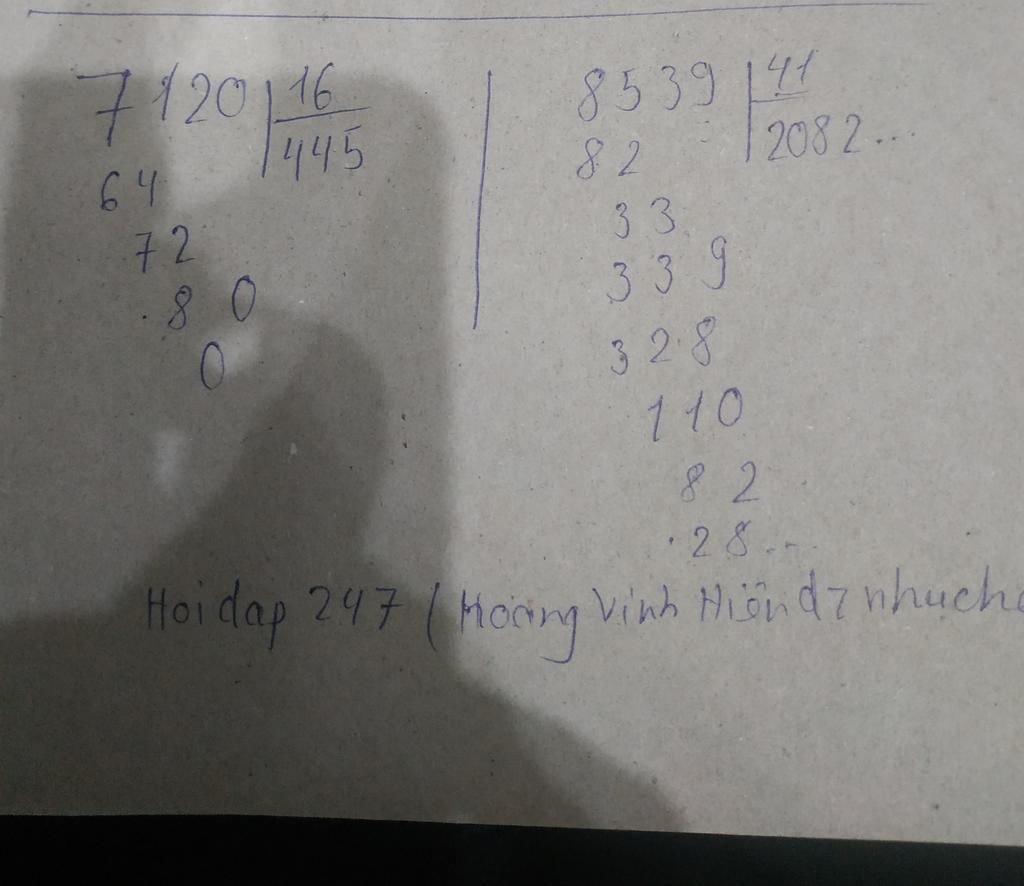 7120 16
445
64
72
.80
0
8539 41
82 2082...
33
339
328
110
82
.28...
Hoidap 247 (Hoàng Vinh